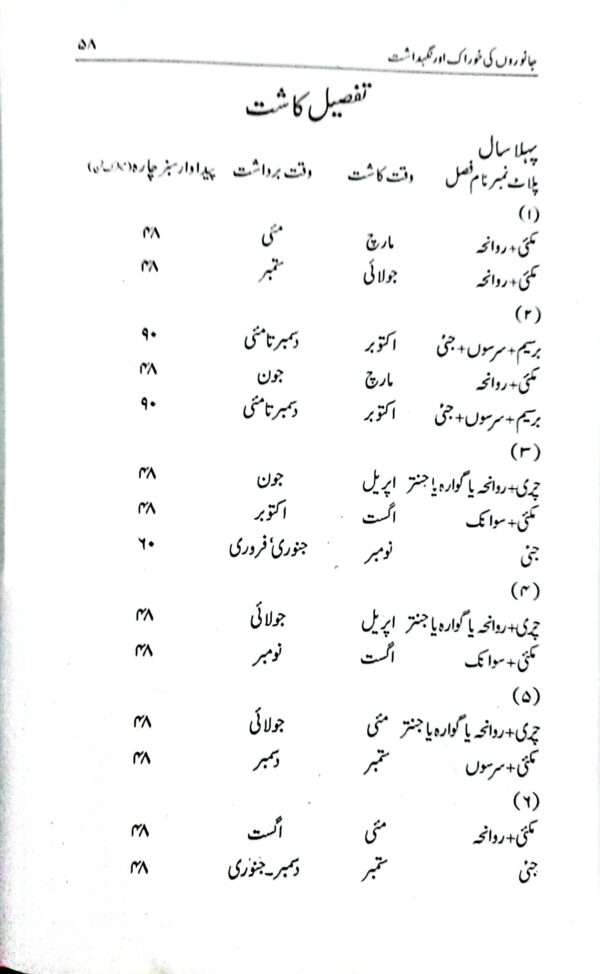 جانوروں کی خوراک اور نگہداشت ۵۸
تفصیل کاشت
پہلا سال
پلاٹ نمبر نام فصل وقت کاشت وقت برداشت پیداوار سبز چارہ
(۱)
مکئی+روانحہ مارچ مئی ۴۸
مکئی+روانحہ جولائی ستمبر ۴۸
(۲)
برسیم+سرسوں+جئی اکتوبر دسمبر تا مئی ۹۰
مکئی+روانحہ مارچ جون ۴۸
برسیم+سرسوں+جئی اکتوبر دسمبر تا مئی ۹۰
(۳)
چری+روانحہ یا گوارہ یا جنتر اپریل جون ۴۸
مکئی+سوانک اگست اکتوبر ۴۸
جئی نومبر جنوری، فروری ۶۰
(۴)
چری+روانحہ یا گوارہ یا جنتر اپریل جولائی ۴۸
مکئی+سوانک اگست نومبر ۴۸
(۵)
چری+روانحہ یا گوارہ یا جنتر مئی جولائی ۴۸
مکئی+سرسوں ستمبر دسمبر ۴۸
(۶)
مکئی+روانحہ مئی اگست ۴۸
جئی ستمبر دسمبر۔جنوری ۴۸